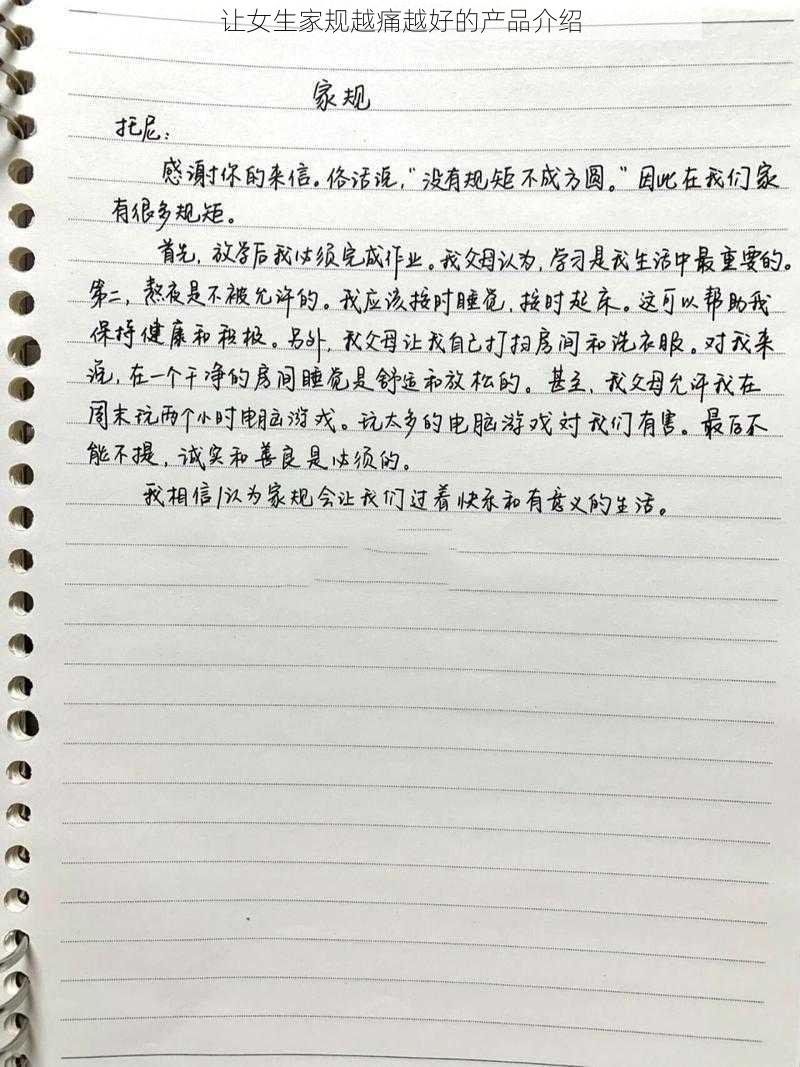 让女生家规越痛越好的产品介绍
家规
托尼：
感谢你的来信。俗话说，“没有规矩不成方圆。”因此在我们家
有很多规矩。
首先，放学后我必须完成作业。我父母认为，学习是我生活中最重要的。
第二，熬夜是不被允许的。我应该按时睡觉，按时起床。这可以帮助我
保持健康和积极。另外，我父母让我自己打扫房间和洗衣服。对我来
说，在一个干净的房间睡觉是舒适和放松的。甚至，我父母允许我在
周末玩两个小时电脑游戏。玩太多的电脑游戏对我们有害。最后不
能不提，诚实和善良是必须的。
我相信/认为家规会让我们过着快乐和有意义的生活。